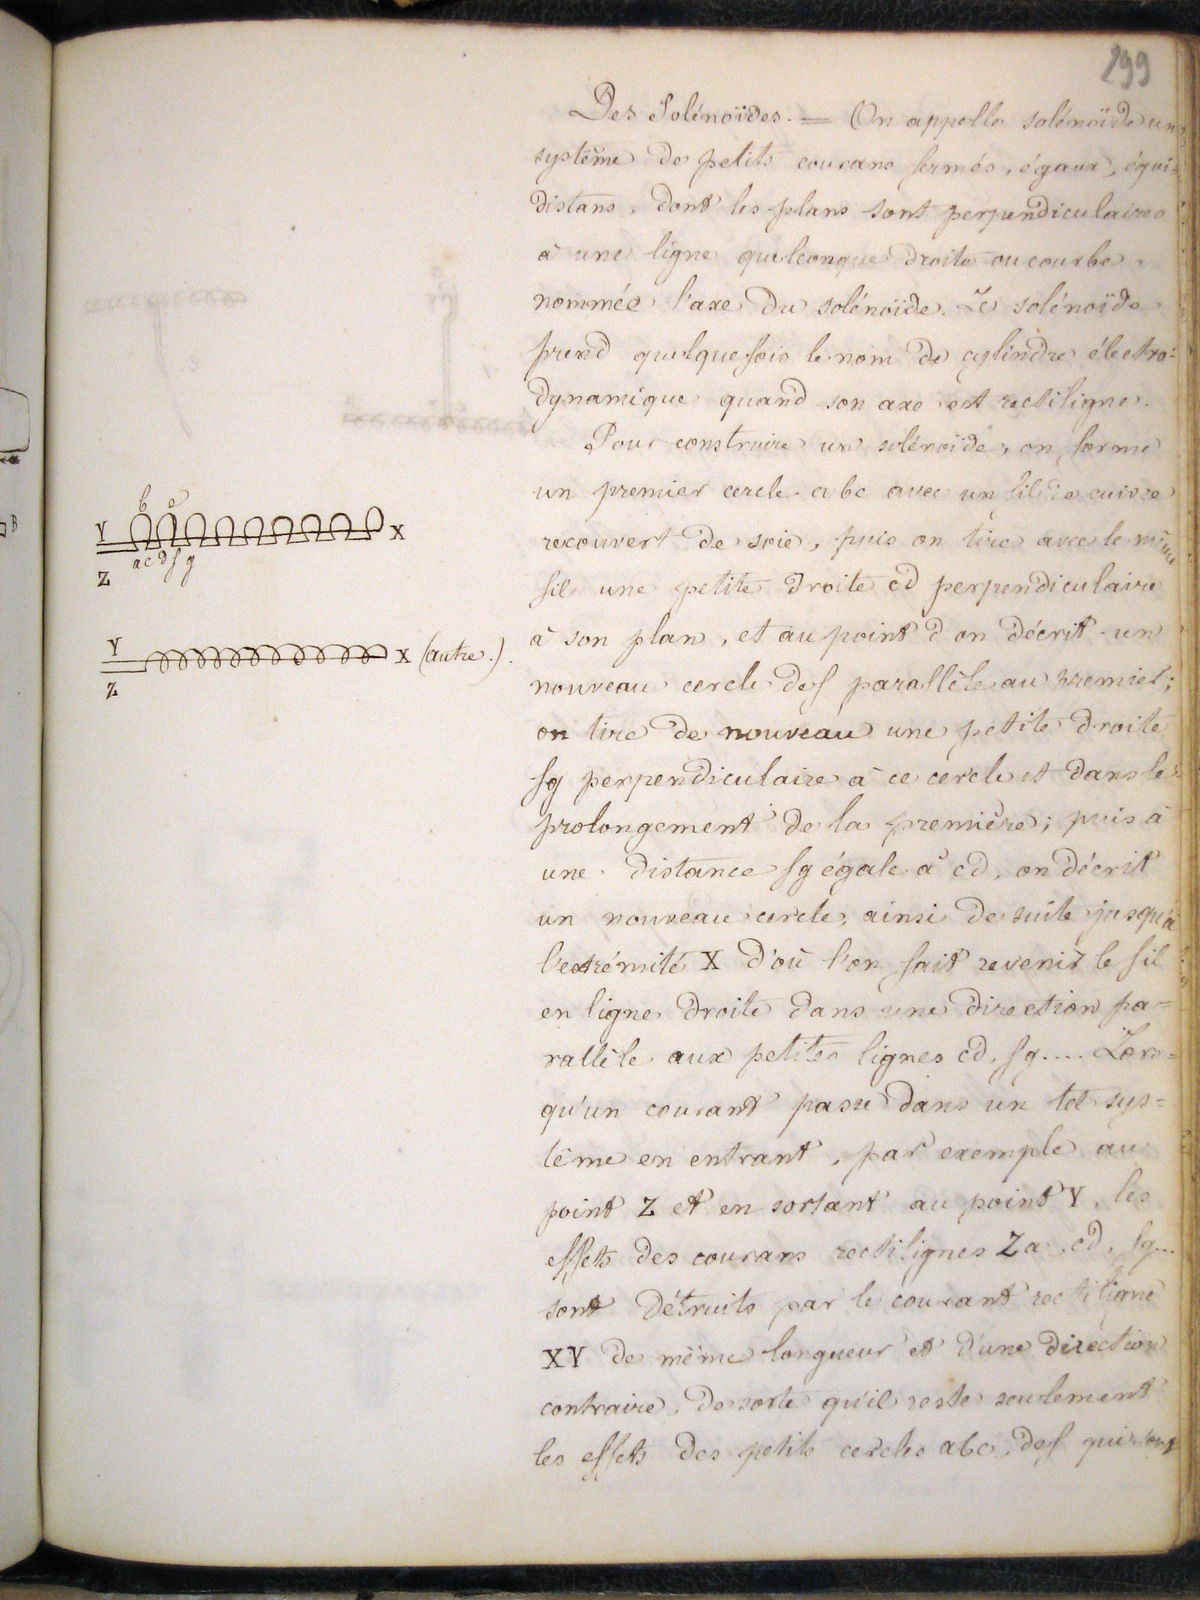 299
Des Solénoïdes. = On appelle solénoïde un
système de petits courans fermés, égaux, équi=
distans, dont les plans sont perpendiculaires
à une ligne quelconque droite ou courbe
nommée l'axe du solénoïde. Le solénoïde
prend quelquefois le nom de cylindre électro=
dynamique quand son axe est rectiligne.
Pour construire un solénoïde, on forme
un premier cercle abc avec un fil de cuivre
recouvert de soie, puis on tire avec le même
fil une petite droite cd perpendiculaire
à son plan, et au point d on décrit un
nouveau cercle def parallèle au premier;
on tire de nouveau une petite droite
fg perpendiculaire à ce cercle et dans le
prolongement de la première; puis à
une distance fg égale à cd, on décrit
un nouveau cercle, ainsi de suite jusqu'à
l'extrémité X d'où l'on fait revenir le fil
en ligne droite dans une direction pa=
rallèle aux petites lignes cd, fg.... Lors=
qu'un courant passe dans un tel sys=
tême en entrant, par exemple au
point Z et en sortant au point Y, les
effets des courans rectilignes Za, cd, fg...
sont détruits par le courant rectiligne
XY de même longueur et d'une direction
contraire, de sorte qu'il reste seulement
les effets des petits cercles abc, def qui sont
b e
Y X
a c d f g
Z
Y X (autre.).
Z
B